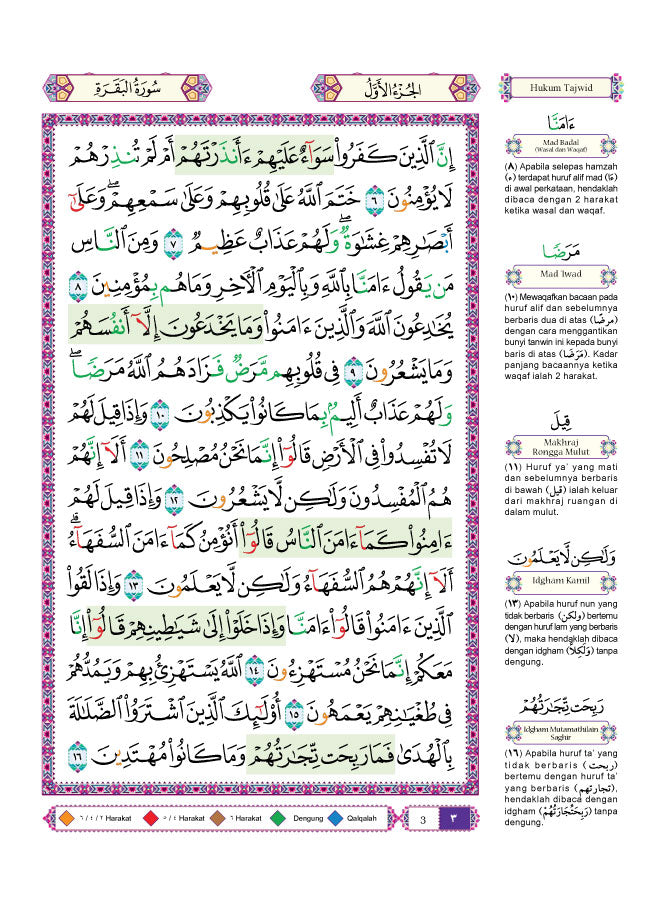 سُورَةُ البَقَرَةِ
الجُزْءُ الأَوَّلُ
إِنَّ ٱلَّذِينَ كَفَرُوا۟ سَوَآءٌ عَلَيْهِمْ ءَأَنذَرْتَهُمْ أَمْ لَمْ تُنذِرْهُمْ
لَا يُؤْمِنُونَ ٦ خَتَمَ ٱللَّهُ عَلَىٰ قُلُوبِهِمْ وَعَلَىٰ سَمْعِهِمْ ۖ وَعَلَىٰٓ
أَبْصَٰرِهِمْ غِشَٰوَةٌ ۖ وَلَهُمْ عَذَابٌ عَظِيمٌ ٧ وَمِنَ ٱلنَّاسِ
مَن يَقُولُ ءَامَنَّا بِٱللَّهِ وَبِٱلْيَوْمِ ٱلْءَاخِرِ وَمَا هُم بِمُؤْمِنِينَ ٨
يُخَٰدِعُونَ ٱللَّهَ وَٱلَّذِينَ ءَامَنُوا۟ وَمَا يَخْدَعُونَ إِلَّآ أَنفُسَهُمْ
وَمَا يَشْعُرُونَ ٩ فِى قُلُوبِهِم مَّرَضٌ فَزَادَهُمُ ٱللَّهُ مَرَضًا ۖ
وَلَهُمْ عَذَابٌ أَلِيمٌۢ بِمَا كَانُوا۟ يَكْذِبُونَ ١٠ وَإِذَا قِيلَ لَهُمْ
لَا تُفْسِدُوا۟ فِى ٱلْأَرْضِ قَالُوٓا۟ إِنَّمَا نَحْنُ مُصْلِحُونَ ١١ أَلَآ إِنَّهُمْ
هُمُ ٱلْمُفْسِدُونَ وَلَٰكِن لَّا يَشْعُرُونَ ١٢ وَإِذَا قِيلَ لَهُمْ
ءَامِنُوا۟ كَمَآ ءَامَنَ ٱلنَّاسُ قَالُوٓا۟ أَنُؤْمِنُ كَمَآ ءَامَنَ ٱلسُّفَهَآءُ ۗ
أَلَآ إِنَّهُمْ هُمُ ٱلسُّفَهَآءُ وَلَٰكِن لَّا يَعْلَمُونَ ١٣ وَإِذَا لَقُوا۟
ٱلَّذِينَ ءَامَنُوا۟ قَالُوٓا۟ ءَامَنَّا وَإِذَا خَلَوْا۟ إِلَىٰ شَيَٰطِينِهِمْ قَالُوٓا۟ إِنَّا
مَعَكُمْ إِنَّمَا نَحْنُ مُسْتَهْزِءُونَ ١٤ ٱللَّهُ يَسْتَهْزِئُ بِهِمْ وَيَمُدُّهُمْ
فِى طُغْيَٰنِهِمْ يَعْمَهُونَ ١٥ أُو۟لَٰٓئِكَ ٱلَّذِينَ ٱشْتَرَوُا۟ ٱلضَّلَٰلَةَ
بِٱلْهُدَىٰ فَمَا رَبِحَت تِّجَٰرَتُهُمْ وَمَا كَانُوا۟ مُهْتَدِينَ ١٦
٦ / ٤ / ٢ Harakat ٥ / ٤ Harakat ٦ Harakat Dengung Qalqalah
3 ٣
Hukum Tajwid
ءَامَنَّا
Mad Badal
(Wasal dan Waqaf)
(٨) Apabila selepas hamzah
(ء) terdapat huruf alif mad (ءَا)
di awal perkataan, hendaklah
dibaca dengan 2 harakat
ketika wasal dan waqaf.
مَرَضًا
Mad 'Iwad
(١٠) Mewaqafkan bacaan pada
huruf alif dan sebelumnya
berbaris dua di atas (مرضًا)
dengan cara menggantikan
bunyi tanwin ini kepada bunyi
baris di atas (مَرَضَا). Kadar
panjang bacaannya ketika
waqaf ialah 2 harakat.
قِيلَ
Makhraj
Rongga Mulut
(١١) Huruf ya' yang mati
dan sebelumnya berbaris
di bawah (قيل) ialah keluar
dari makhraj ruangan di
dalam mulut.
وَلَٰكِن لَّا يَعْلَمُونَ
Idgham Kamil
(١٣) Apabila huruf nun yang
tidak berbaris (ولكن) bertemu
dengan huruf lam yang berbaris
(لَا), maka hendaklah dibaca
dengan idgham (وَلَكِلَّا) tanpa
dengung.
رَبِحَت تِّجَٰرَتُهُمْ
Idgham Mutamathilain
Saghir
(١٦) Apabila huruf ta' yang
tidak berbaris (ربحت)
bertemu dengan huruf ta'
yang berbaris (تجارتهم),
hendaklah dibaca dengan
idgham (رَبِحَتِّجَارَتُهُمْ) tanpa
dengung.